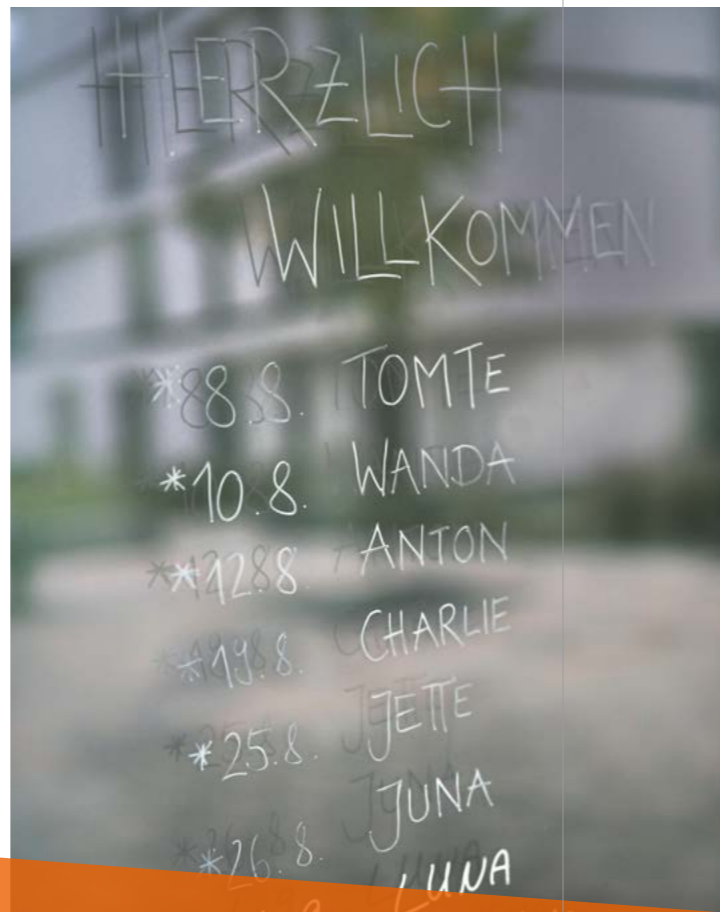 HERZLICH
WILLKOMMEN
*8.8. TOMTE
*10.8. WANDA
*12.8. ANTON
*19.8. CHARLIE
*25.8. JETTE
*26.8. JUNA
LUNA